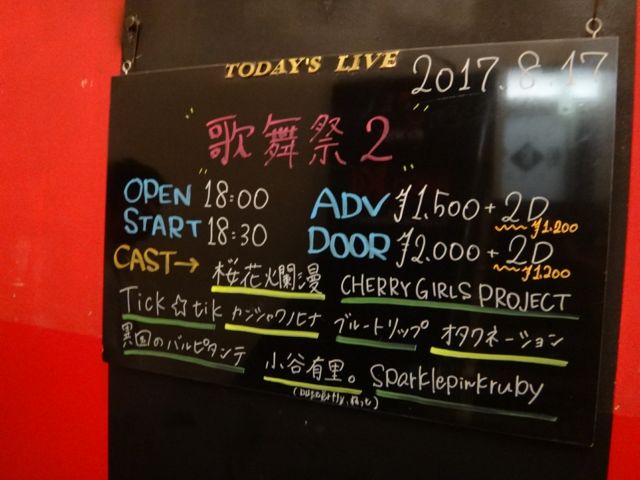 TODAY'S LIVE 2017.8.17
歌舞祭2
OPEN 18:00 ADV ¥1,500+2D
¥1,200
START 18:30 DOOR ¥2,000+2D
¥1,200
CAST→ 桜花爛漫 CHERRY GIRLS PROJECT
Tick☆tik カンジャクノヒナ ブルートリップ オタクネーション
異国のバルピタンテ 小谷有里。 Sparklepinkruby